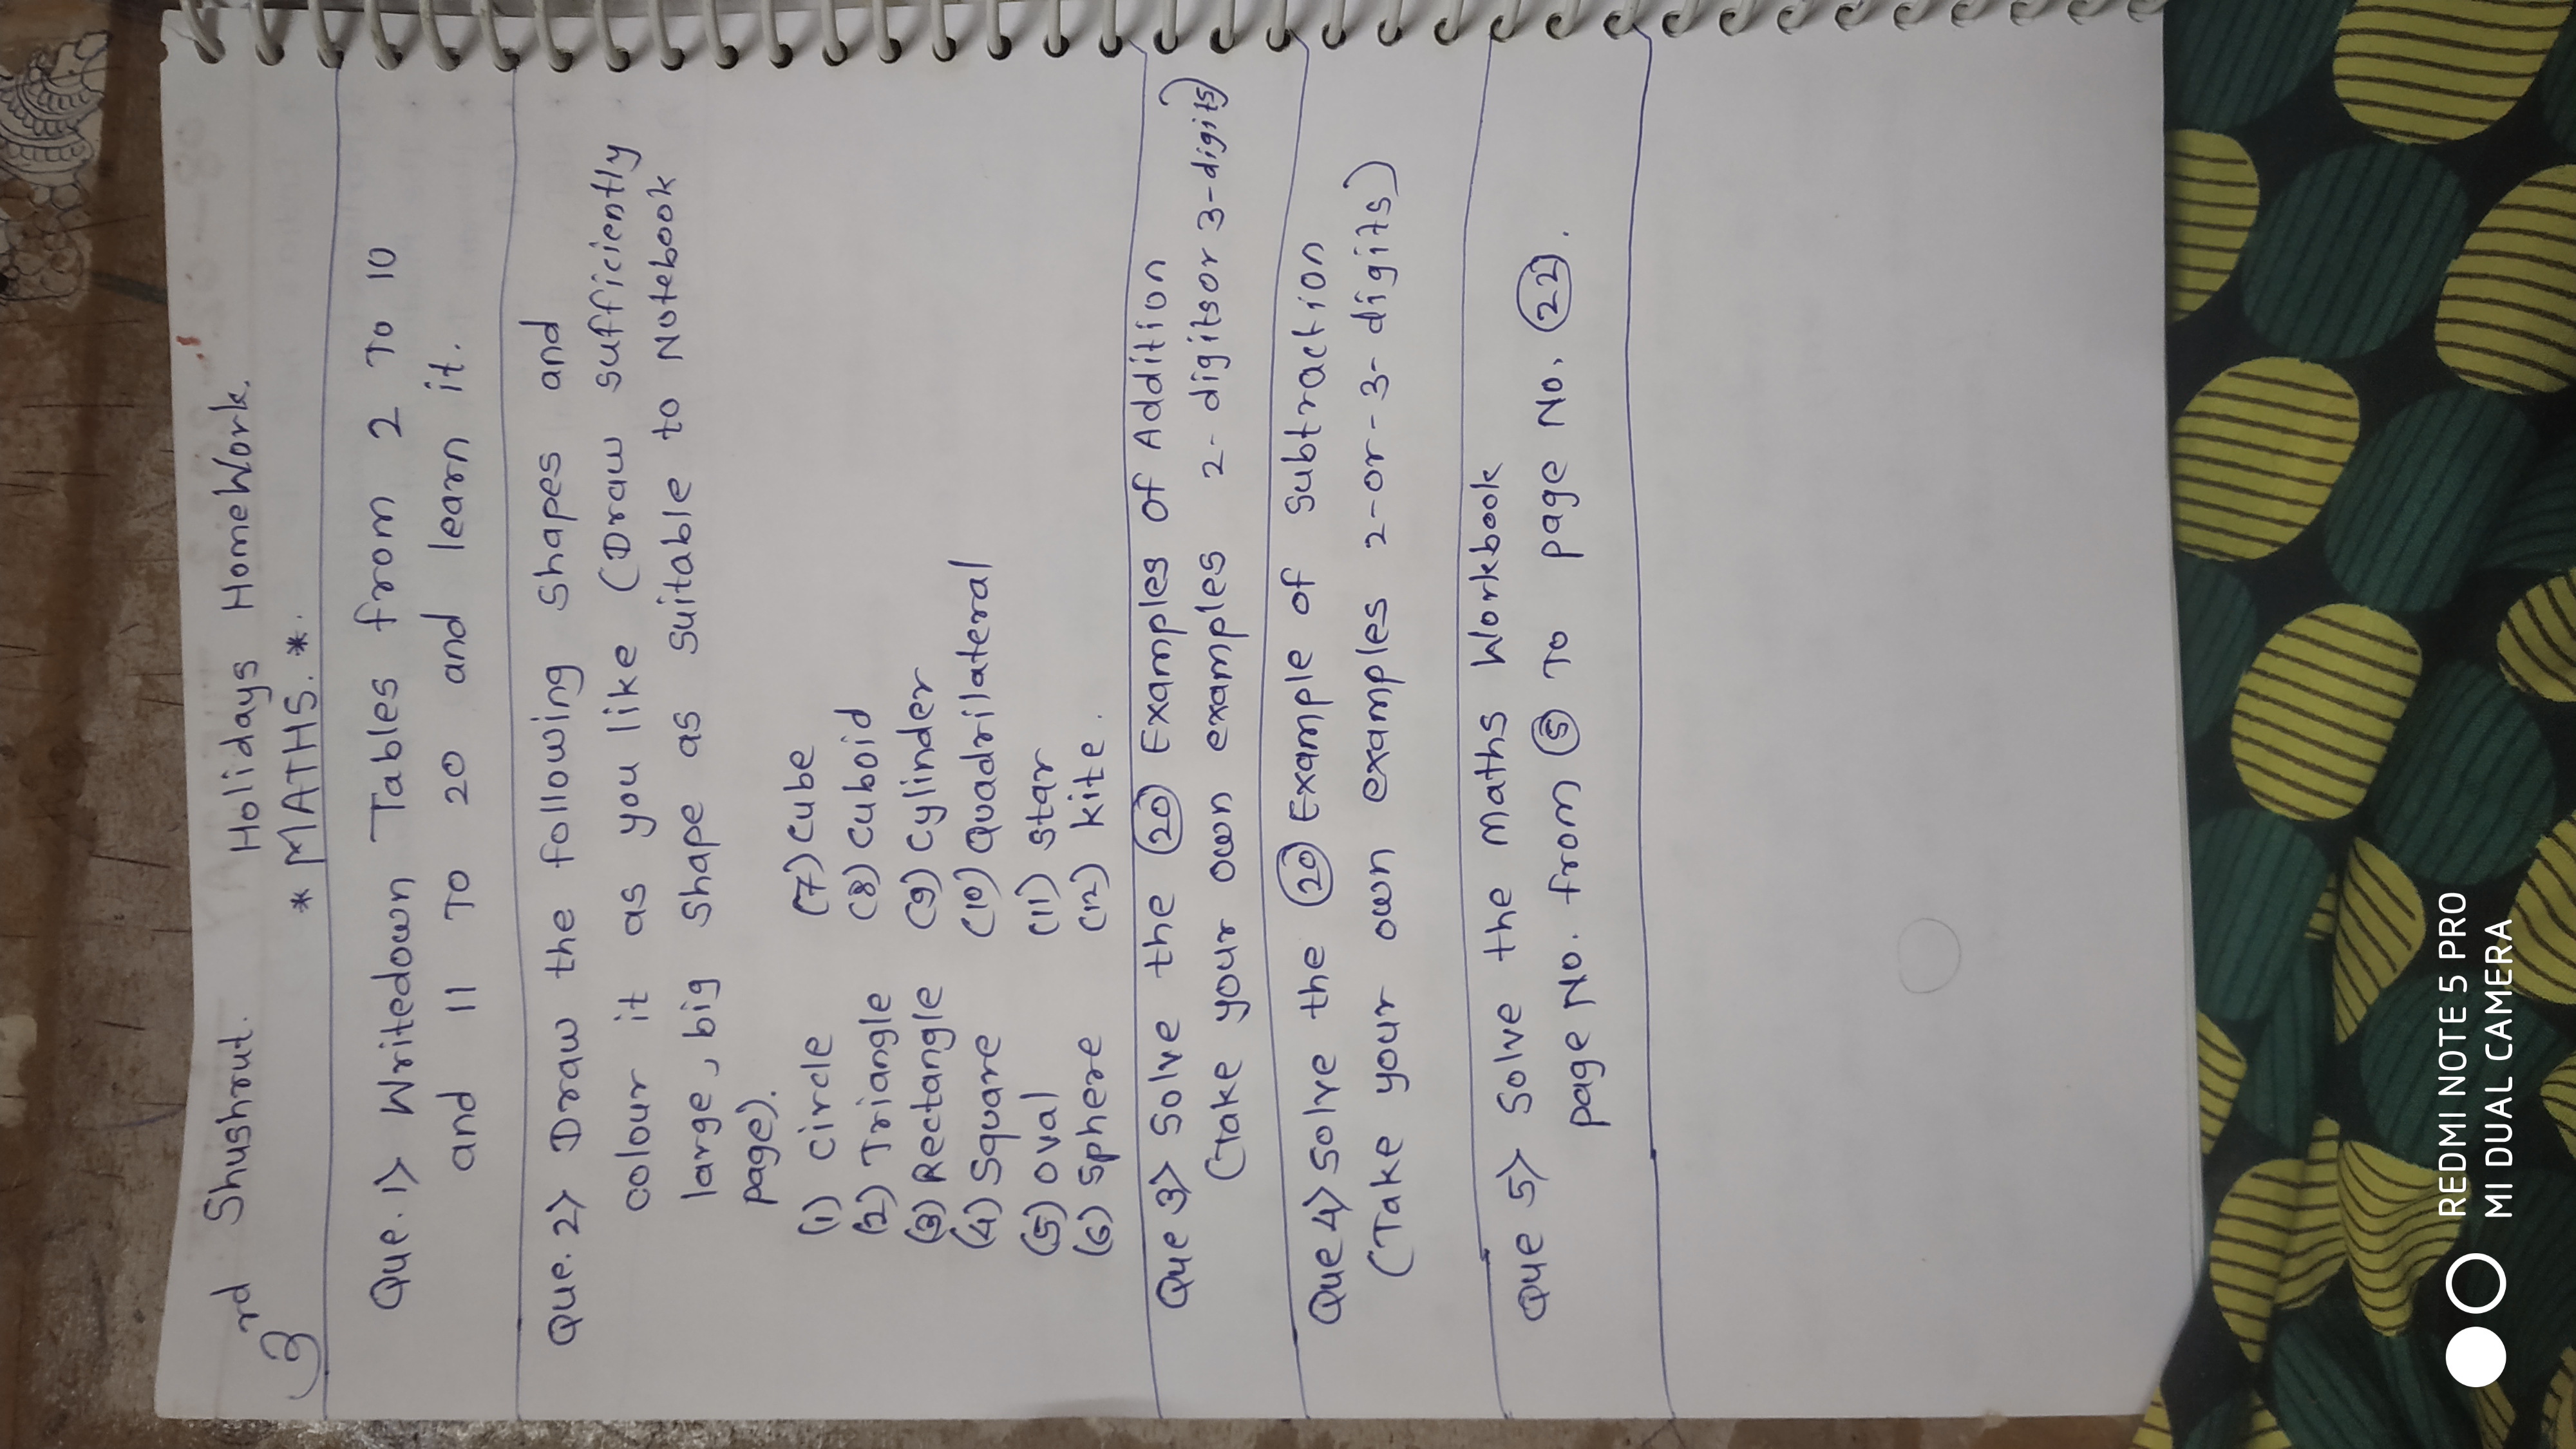 3rd Shushrut. Holidays HomeWork.
* MATHS. *.
Que. 1> Writedown Tables from 2 To 10
and 11 To 20 and learn it.
Que. 2> Draw the following shapes and
colour it as you like (Draw sufficiently
large, big shape as suitable to Notebook
page).
(1) Circle (7) Cube
(2) Triangle (8) Cuboid
(3) Rectangle (9) Cylinder
(4) Square (10) Quadrilateral
(5) Oval (11) Star
(6) Sphere (12) kite.
Que 3> Solve the 20 Examples of Addition
(Take your own examples 2-digits or 3-digits)
Que 4> Solve the 20 Example of Subtraction
(Take your own examples 2-or-3-digits)
Que 5> Solve the Maths Workbook
page No. from 5 To page No. 22.
REDMI NOTE 5 PRO
MI DUAL CAMERA